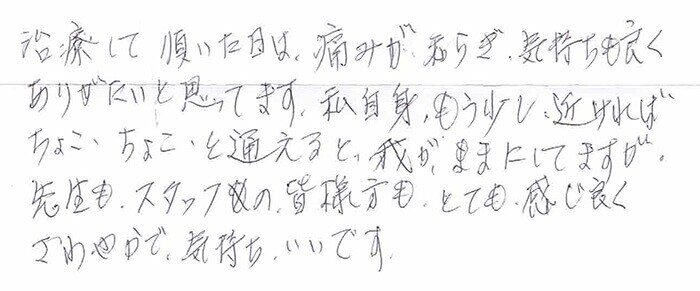 治療して頂いた日は、痛みが和らぎ、気持ちも良く
ありがたいと思ってます。私自身、もう少し、近ければ
ちょこ、ちょこ、と通えると、我が、ままにしてますが。
先生も、スタッフの、皆様方も、とても、感じ良く
さわやかで、気持ち、いいです。